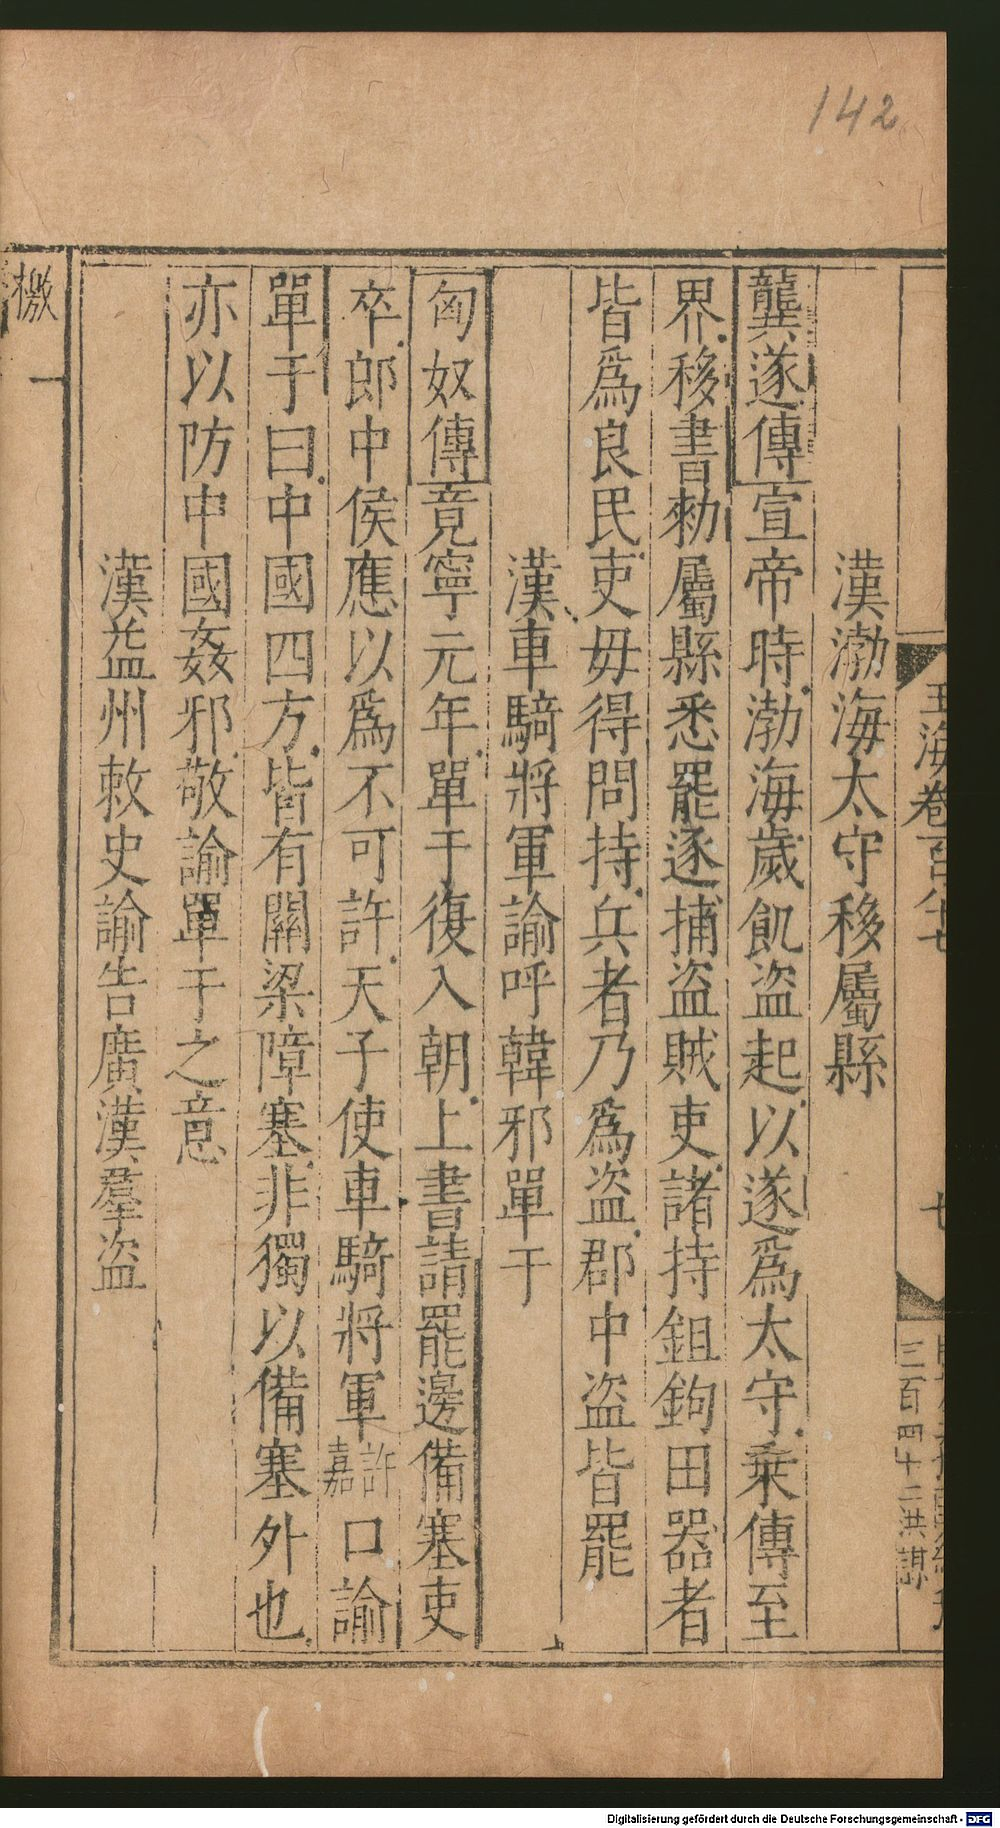 142
玉海卷百八十七
七
三百四十二洪謀
漢渤海太守移屬縣
龔遂傳宣帝時渤海歲飢盜起以遂爲太守乘傳至
界移書勑屬縣悉罷逐捕盜賊吏諸持鉏鉤田器者
皆爲良民吏毋得問持兵者乃爲盜郡中盜皆罷
漢車騎將軍諭呼韓邪單于
匈奴傳竟寧元年單于復入朝上書請罷邊備塞吏
卒郎中侯應以爲不可許天子使車騎將軍許嘉口諭
單于曰中國四方皆有關梁障塞非獨以備塞外也
亦以防中國姦邪敬諭單于之意
漢益州敕史諭告廣漢羣盜
檄
一
Digitalisierung gefördert durch die Deutsche Forschungsgemeinschaft - DFG